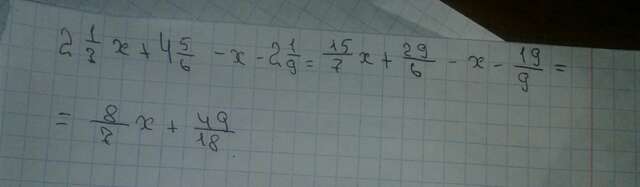 2 1/3 x + 4 5/6 - x - 2 1/9 = 15/7 x + 29/6 - x - 19/9 =
= 8/7 x + 49/18